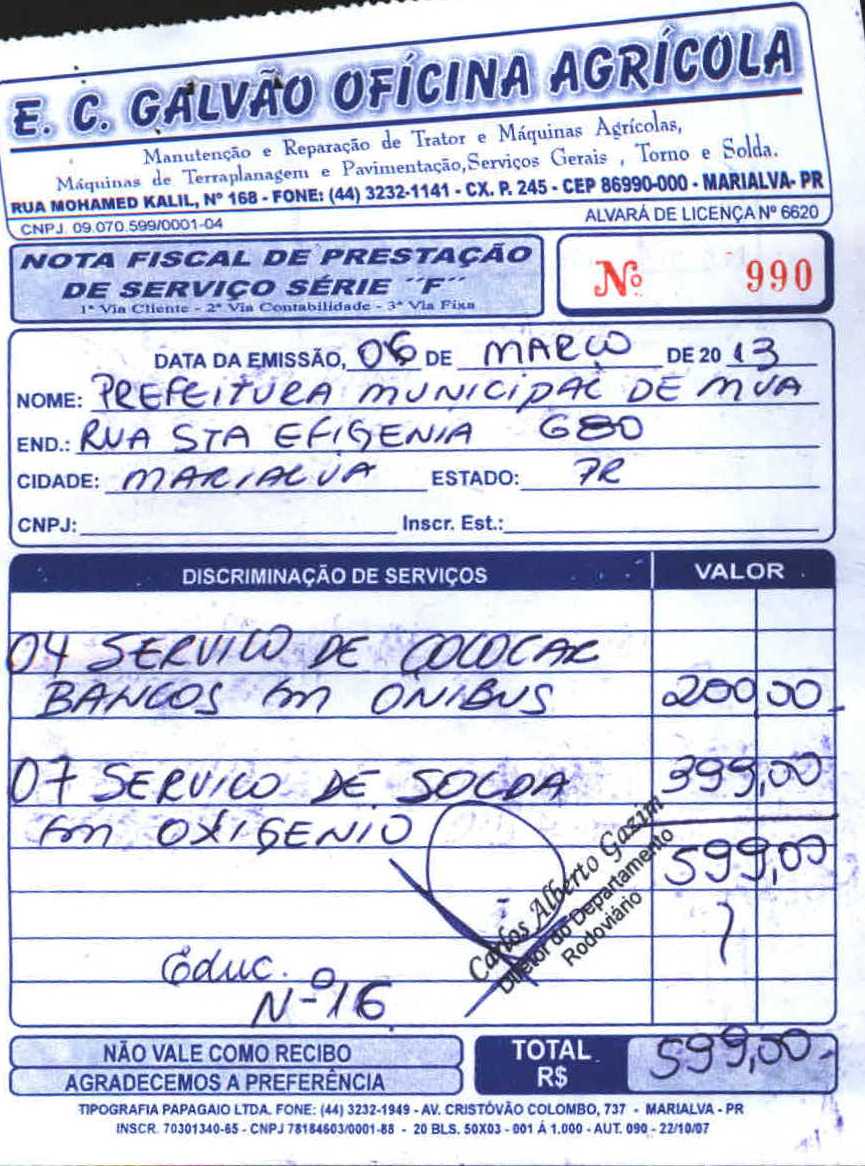 E. C. GALVÃO OFÍCINA AGRÍCOLA
Manutenção e Reparação de Trator e Máquinas Agrícolas,
Máquinas de Terraplanagem e Pavimentação,Serviços Gerais , Torno e Solda.
RUA MOHAMED KALIL, Nº 168 - FONE: (44) 3232-1141 - CX. P. 245 - CEP 86990-000 - MARIALVA- PR
CNPJ. 09.070.599/0001-04 ALVARÁ DE LICENÇA Nº 6620
NOTA FISCAL DE PRESTAÇÃO
DE SERVIÇO SÉRIE "F"
1ª Via Cliente - 2ª Via Contabilidade - 3ª Via Fixa
Nº 990
DATA DA EMISSÃO, 06 DE MARÇO DE 20 13
NOME: PREFEITURA MUNICIPAL DE MVA
END.: RUA STA EFIGENIA 680
CIDADE: MARIALVA ESTADO: PR
CNPJ: Inscr. Est.:
DISCRIMINAÇÃO DE SERVIÇOS VALOR
04 SERVICO DE COLOCAR
BANCOS em ONIBUS 200,00
07 SERVICO DE SOLDA 399,00
em OXIGENIO
599,00
Carlos Alberto Gazim
Diretor do Departamento
Rodoviário
Educ.
Nº 16
NÃO VALE COMO RECIBO
AGRADECEMOS A PREFERÊNCIA
TOTAL R$ 599,00
TIPOGRAFIA PAPAGAIO LTDA. FONE: (44) 3232-1949 - AV. CRISTÓVÃO COLOMBO, 737 - MARIALVA - PR
INSCR. 70301340-65 - CNPJ 78184603/0001-88 - 20 BLS. 50X03 - 001 Á 1.000 - AUT. 090 - 22/10/07